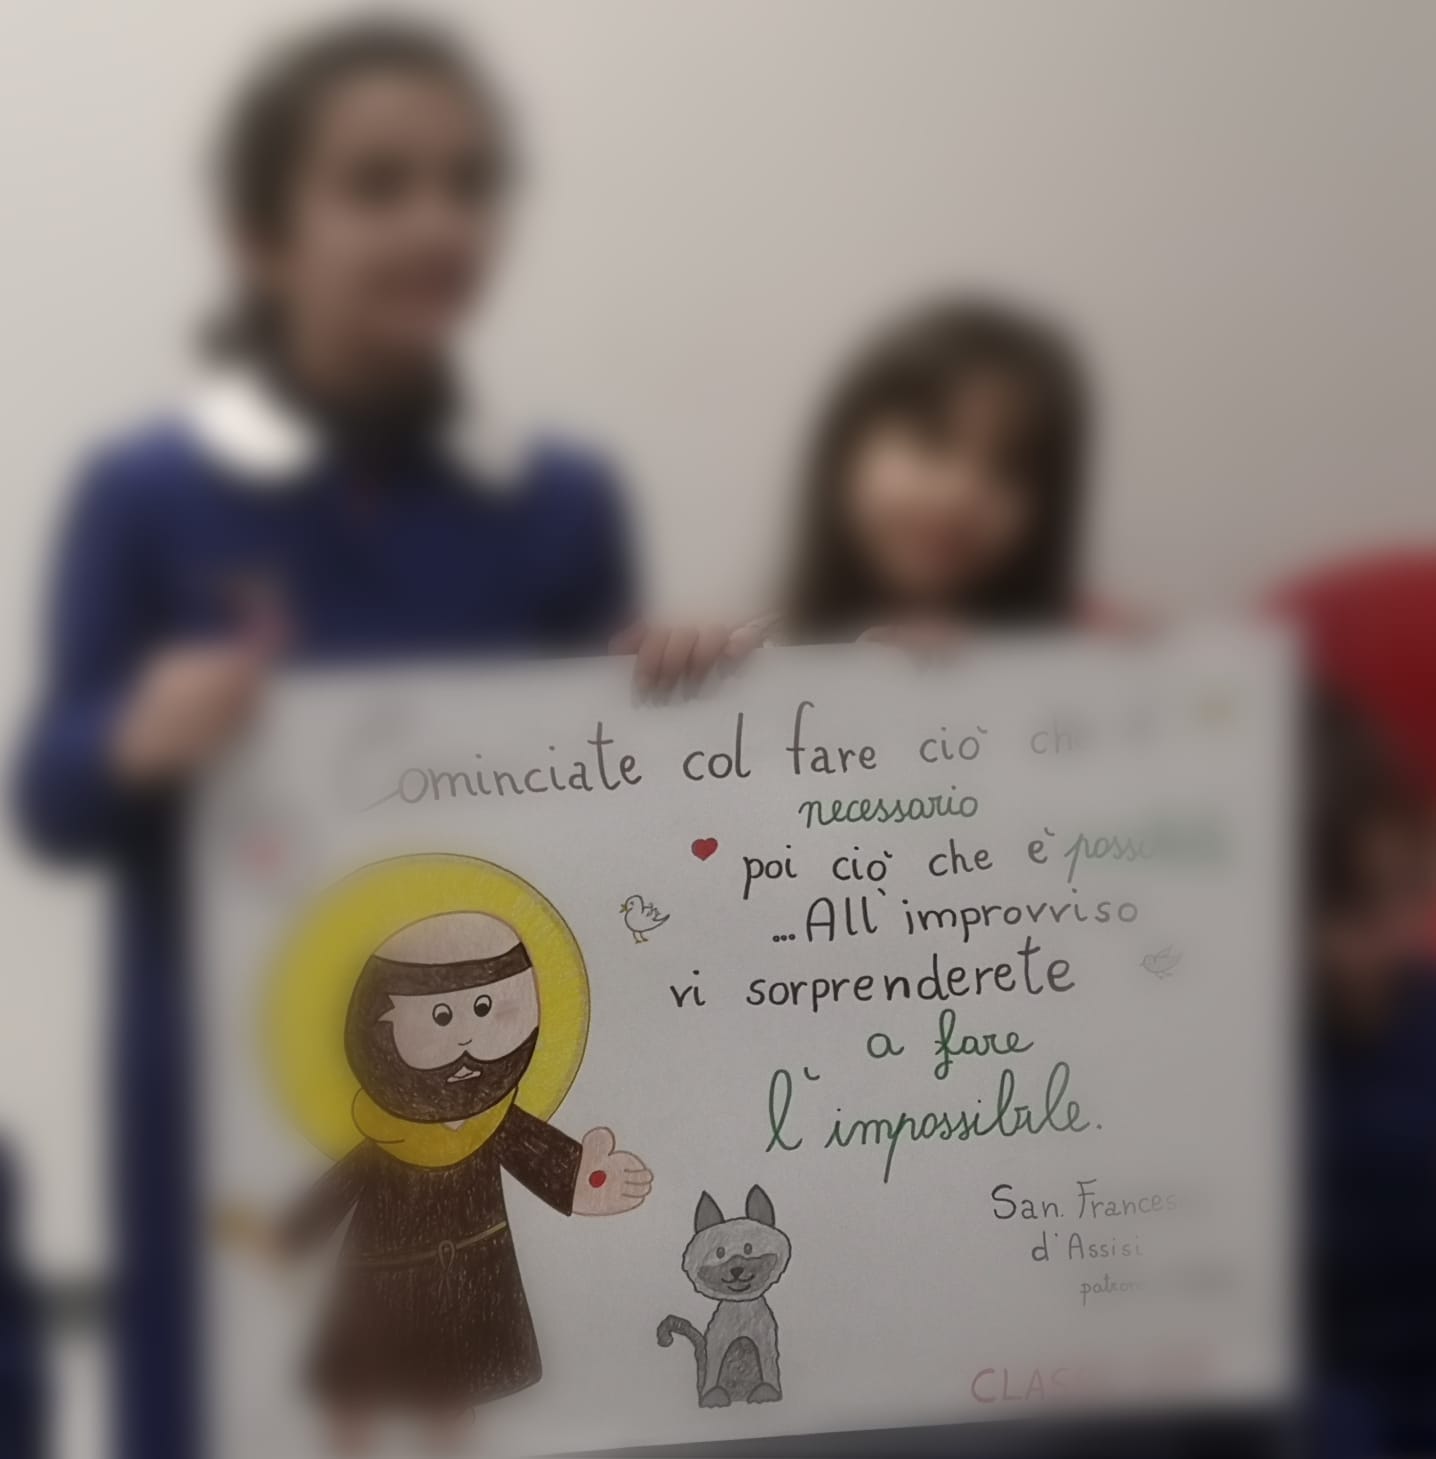 ominciate col fare ciò ch
necessario
poi ciò che è poss
...All'improvviso
vi sorprenderete
a fare
l'impossibile.
San Frances
d'Assisi
patron
CLAS